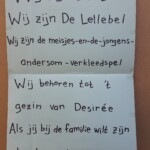 Wij zijn De Lellebel
Wij zijn de meisjes-en-de-jongens-
andersom-verkleedspel
Wij behoren tot 't
gezin van Desirée
Als jij bij de familie wilt zijn